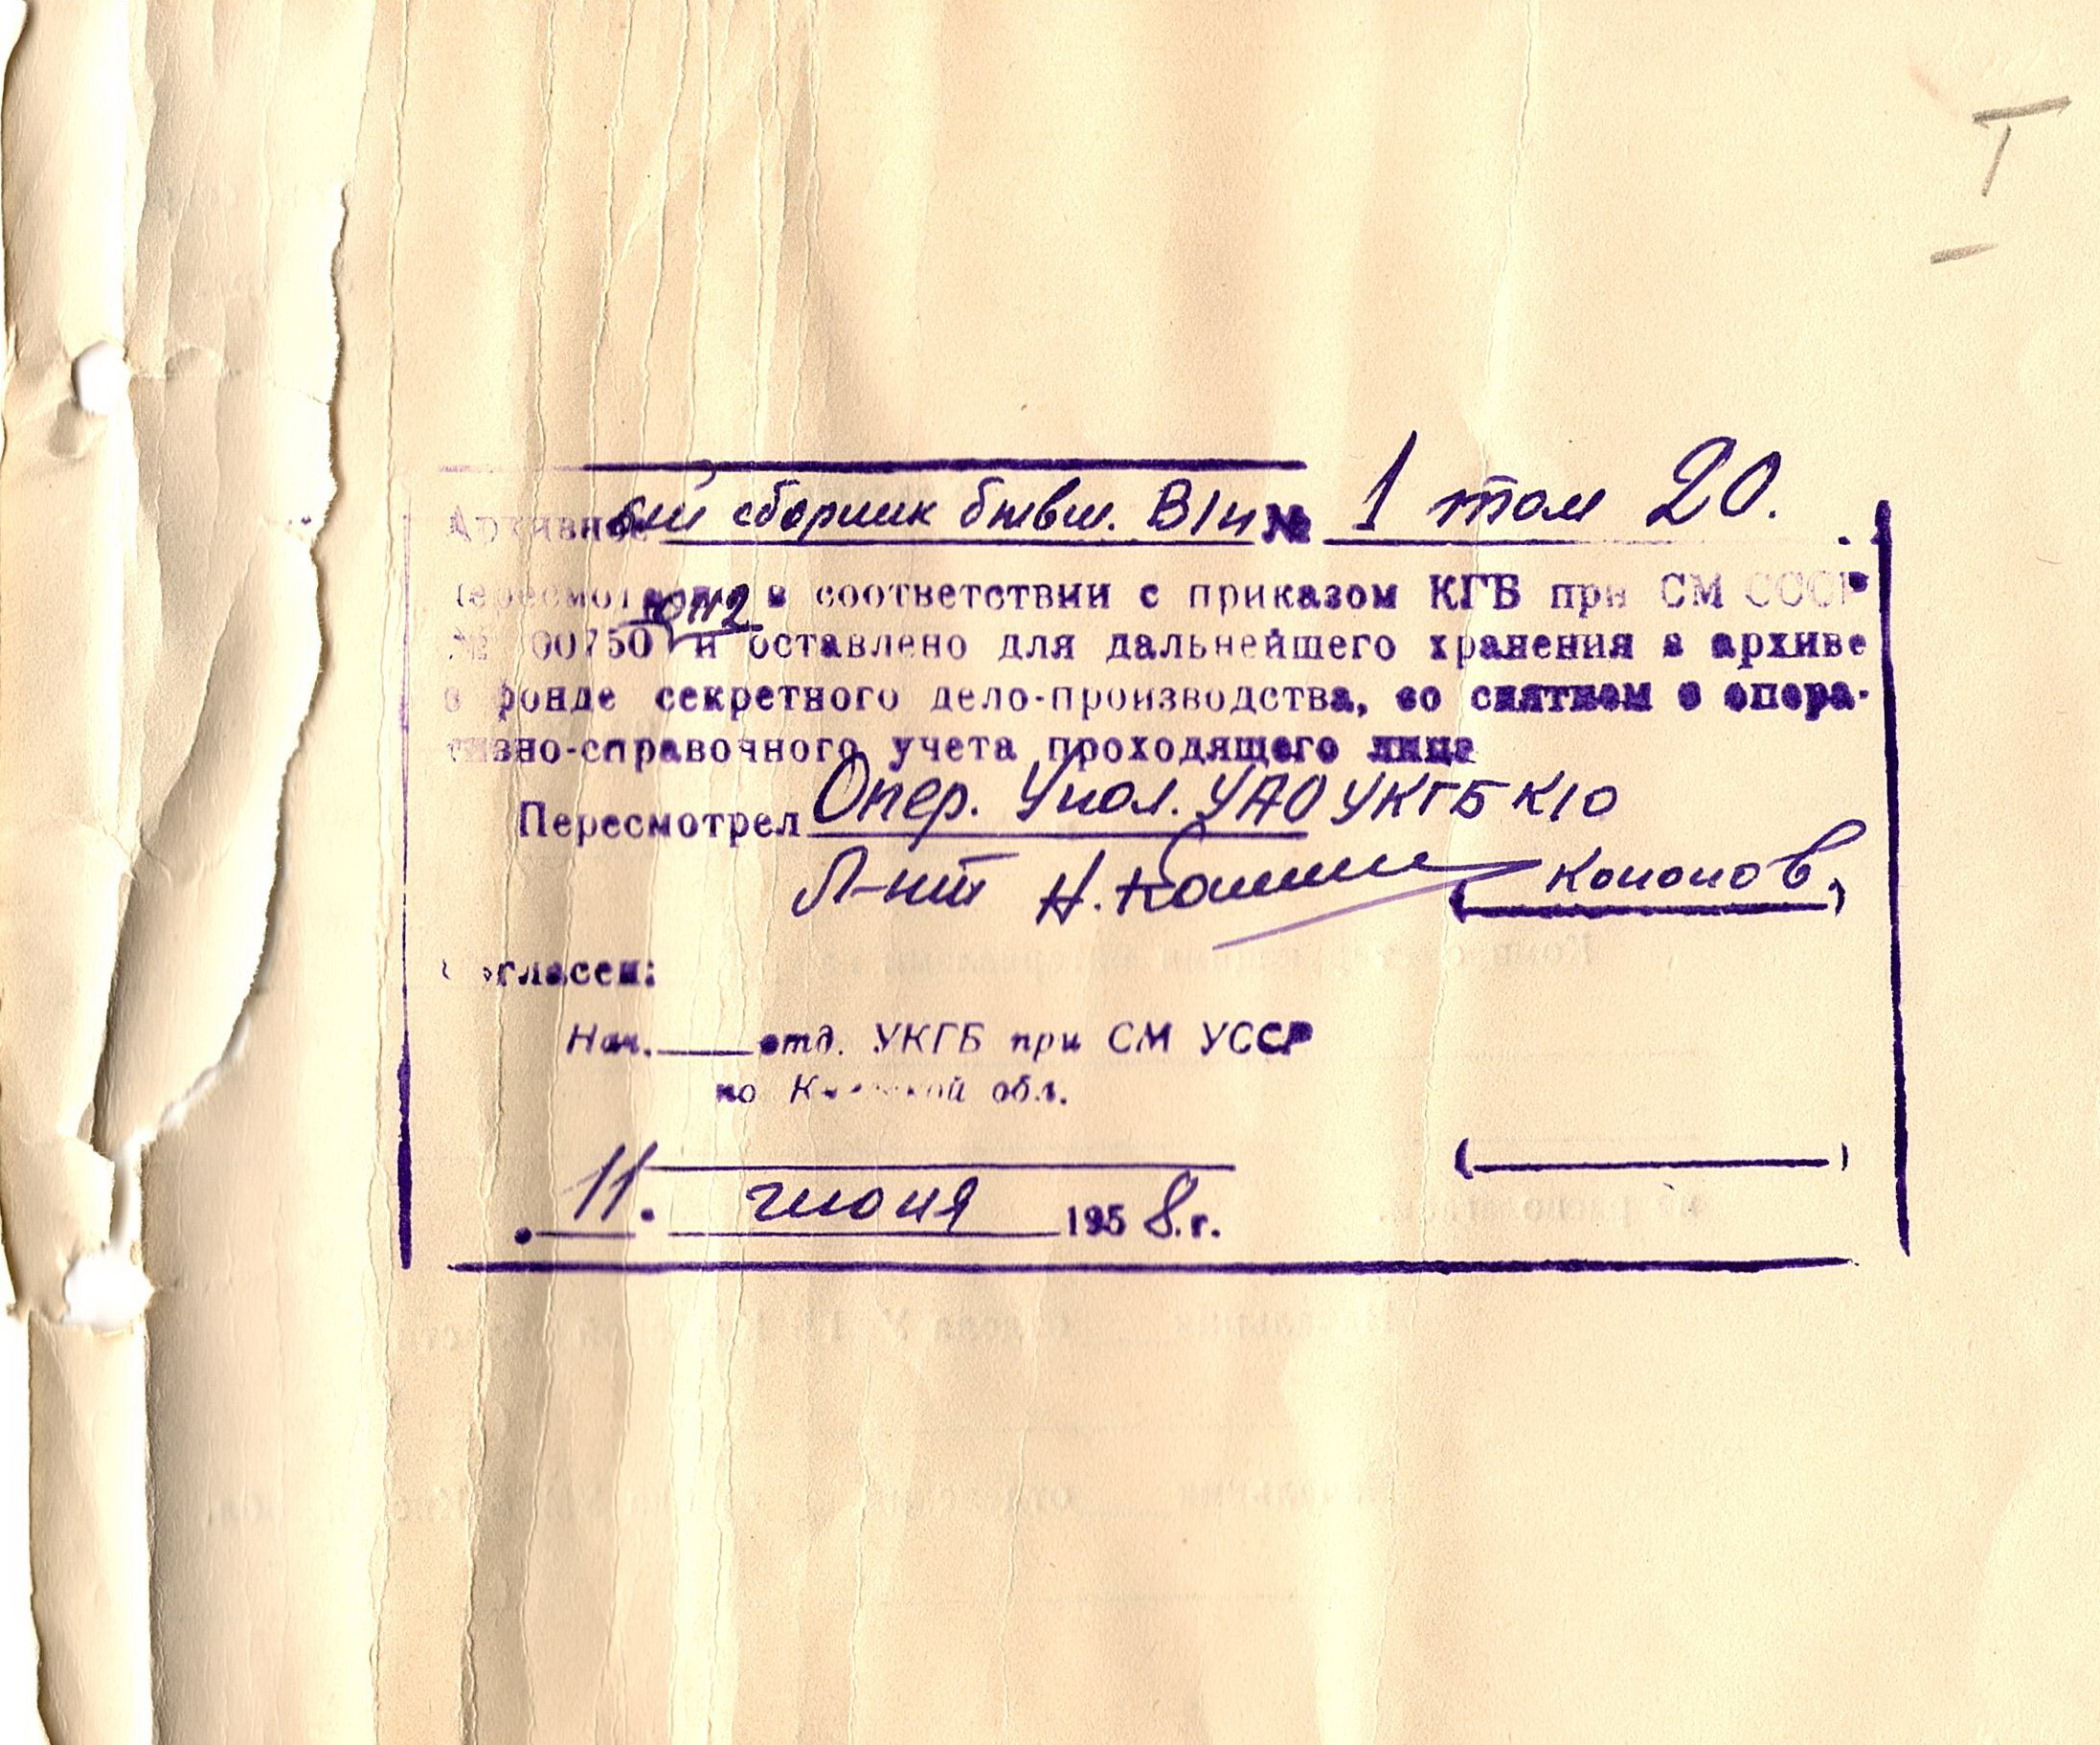 Т
Архивный сборник бывш. В/ч № 1 том 20.
Пересмотрено в соответствии с приказом КГБ при СМ СССР
№ 00750 и оставлено для дальнейшего хранения в архиве
в фонде секретного дело-производства, со снятием с опера-
тивно-справочного учета проходящего лица
Пересмотрел Опер. Упол. УАО УКГБ К/О
Л-нт (Кононов.)
Согласен:
Нач. отд. УКГБ при СМ УССР
по Киевской обл.
11. июня 1958. г.